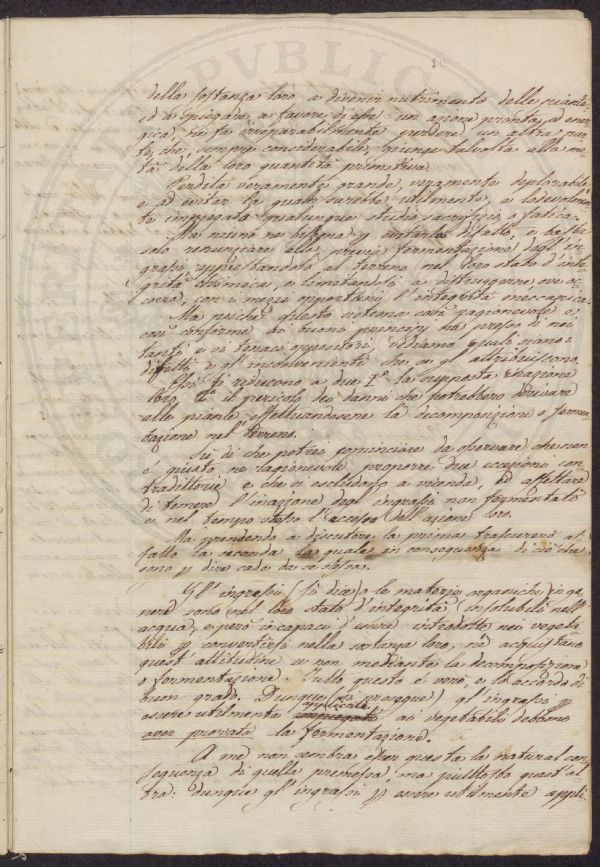 10
della sostanza loro a divenir nutrimento delle piante,
ed a spiegare a favore di esse un azione pronta, ed ener-
gica, ne fa irreparabilmente perdere un altra par-
te, che sempre considerabile, giunge talvolta alla me-
tà della loro quantità primitiva.
Perdita veramente grande, veramente deplorabile
e ad evitar la quale sarebbe utilmente, e lodevolmen-
te impiegato qualunque studio sacrifizio, o fatica.
Ma niuno ne bisogna p. ottanto di fatto, e basta
solo renunziare alla previa fermentazione degl'in-
grassi, apprestandoli al terreno nel loro stato d'inte-
grità chimica, e limitandosi a distruggerne ove oc-
corra, con i mezzi opportuni, l'integrità meccanica.
Ma poichè questo sistema così ragionevole e
così conforme ai buoni principj ha presso di noi
tanti e sì tenaci oppositori, vediamo quali siano i
difetti, e gl'inconvenienti che se gl'attribuiscono.
Essi si riducono a due I.° la supposta inazione
loro, II.° il pericolo dei danni che potrebbero derivare
alle piante effettuandosene la decomposizione e fermen-
tazione nel terreno.
Su di che potrei cominciare da osservare che non
è giusto nè ragionevole proporre due eccezioni con-
tradittorie e che si escludono a vicenda, ed affettare
di temere l'inazione degl'ingrassi non fermentati
e nel tempo stesso l'eccesso dell'azione loro.
Ma prendendo a discutere la prima trascurerò af-
fatto la seconda la quale in conseguenza di ciò che
sono p. dire cade da se stessa.
Gl'ingrassi (si dice) o le materie organiche in ge-
nere sono nel loro stato d'integrità insolubili nell'
acqua, e però incapaci d'essere introdotti nei vegeta-
bili p. convertirsi nella sostanza loro, nè acquistano
quest'attitudine se non mediante la decomposizione
o fermentazione. Tutto questo è vero, e lo accordo di
buon grado. Dunque (si prosegue) gl'ingrassi p.
applicati
essere utilmente impiegati ai vegetabili debbono
aver provata la fermentazione.
A me non sembra esser questa la natural con-
seguenza di quella premessa, ma piuttosto quest'al-
tra: dunque gl'ingrassi p. essere utilmente appli-